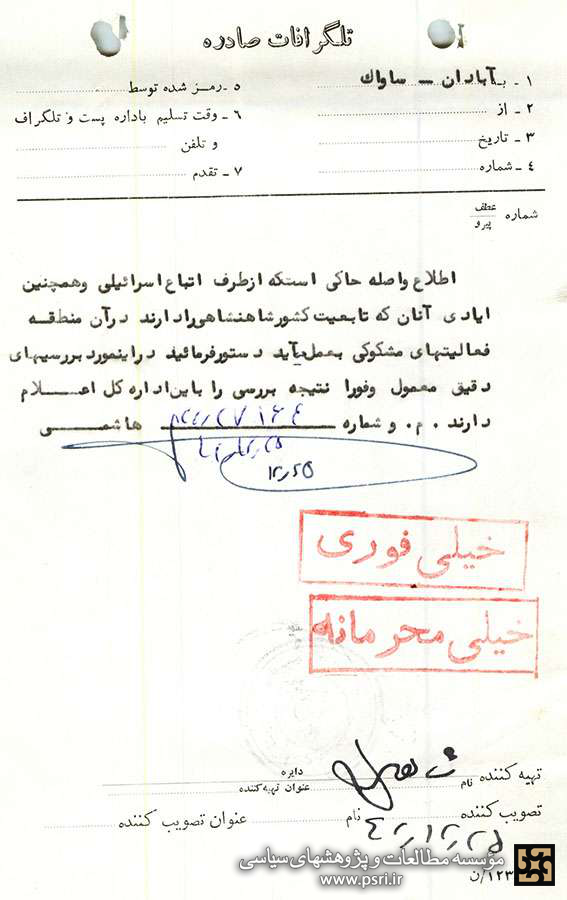 تلگرافات صادره
۱ - بآبادان - ساواك
۵ - رمز شده توسط
۲ - از
۶ - وقت تسلیم باداره پست و تلگراف
و تلفن
۳ - تاریخ
۴ - شماره
۷ - تقدم
شماره عطف پیرو
اطلاع واصله حاکی استکه ازطرف اتباع اسرائیلی وهمچنین
ایادی آنان که تابعیت کشورشاهنشاهی رادارند درآن منطقه
فعالیتهای مشکوکی بعمل میآید دستورفرمائید دراینمورد بررسیهای
دقیق معمول وفورا نتیجه بررسی را باین اداره کل اعـــلام
دارند . م . و شماره هاشمــی
۱۲٫۲۵
خیلی فوری
خیلی محرمانه
تهیه کننده نام
دایره
عنوان تهیه کننده
تصویب کننده نام عنوان تصویب کننده
مؤسسه مطالعات و پژوهشهای سیاسی
www.psri.ir
۱۲۳/ن